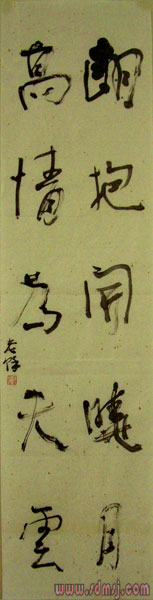 朗抱開曉月
高情天雲
www.sdmsj.com